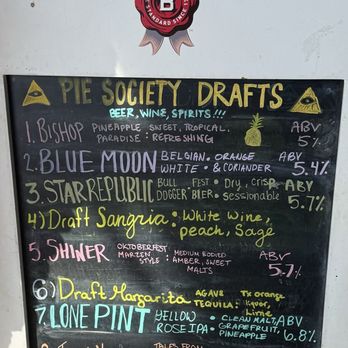 B
STANDARD SINCE
PIE SOCIETY DRAFTS
BEER, WINE, SPIRITS!!!
1. BISHOP PINEAPPLE SWEET, TROPICAL. ABV
PARADISE : REFRESHING 5%
2. BLUE MOON BELGIAN • ORANGE ABV
WHITE • & CORIANDER 5.4%
3. STAR REPUBLIC BULL FEST • Dry, crisp ABV
DOGGER BIER • sessionable 5.7%
4) Draft Sangria : White Wine,
peach, Sage
5. SHINER OKTOBERFEST MEDIUM BODIED ABV
MARZEN AMBER, SWEET 5.7%
STYLE : MALTS
6) Draft Margarita AGAVE Tx orange
TEQUILA : liquor,
Lime
7. LONE PINT YELLOW • CLEAN MALT, ABV
ROSE IPA • GRAPEFRUIT, 6.8%
PINEAPPLE
TALES FROM